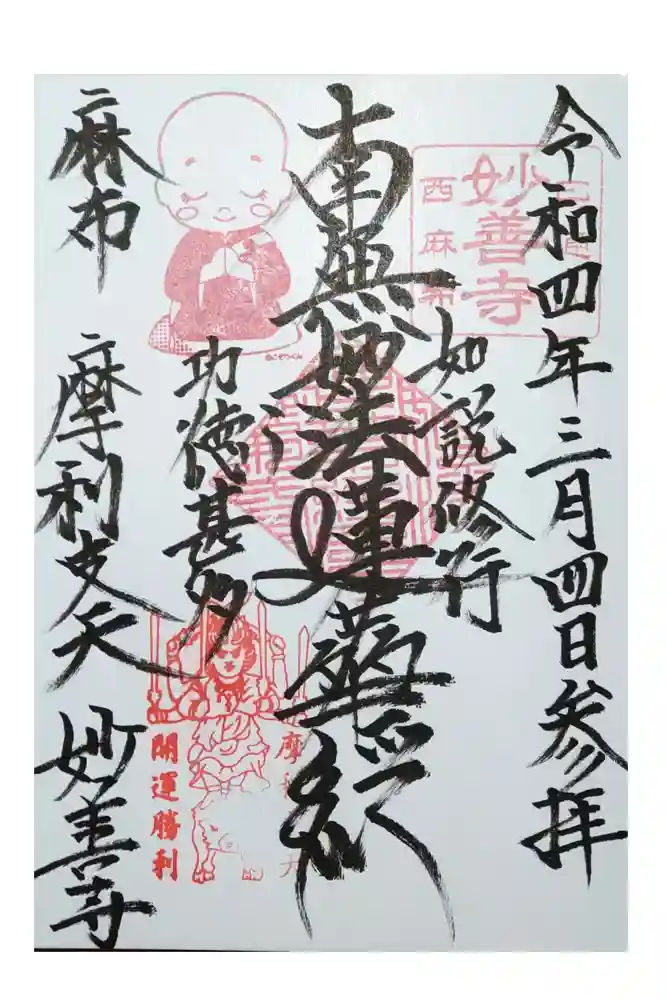 令和四年三月四日参拝
妙善寺
西麻布
如説修行
南無妙法蓮華経
功徳甚多
開運勝利
麻布 摩利支天 妙善寺